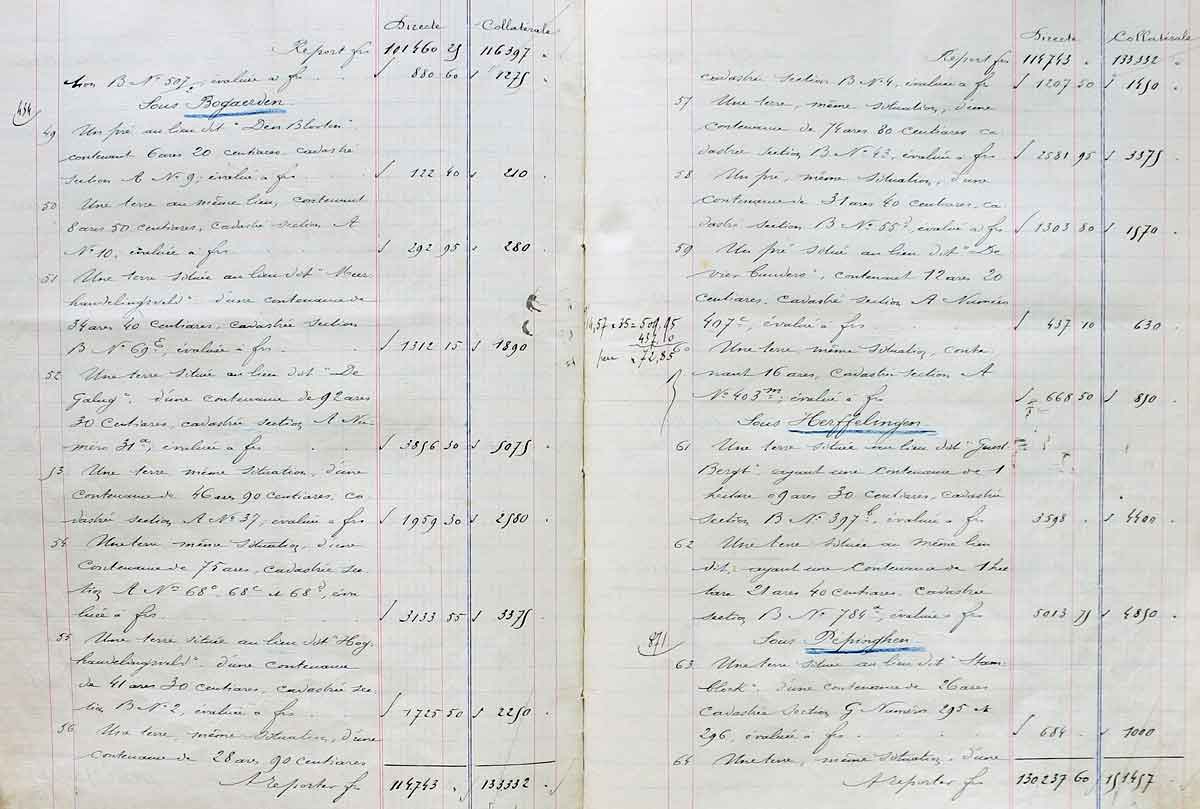 Directe Collatérale
Report frs 101460 25 116397 "
tion B Nº 507, évaluée à frs 880 60 1275
454
Sous Bogaerden
49 Un pré au lieu dit "Den Bloetin"
contenant 6 ares 20 centiares, cadastré
section A Nº 9, évaluée à frs 122 40 210
50 Une terre au même lieu, contenant
8 ares 50 centiares, cadastrée section A
Nº 10, évaluée à frs 292 95 280
51 Une terre située au lieu dit
d'une contenance de
34 ares 40 centiares, cadastrée section
B Nº 69E, évaluée à frs 1312 15 1890
52 Une terre située au lieu dit "De
Galug", d'une contenance de 92 ares
30 centiares, cadastrée section A Nu-
méro 31a, évaluée à frs 3856 30 5075
53 Une terre même situation, d'une
contenance de 46 ares 90 centiares, ca-
dastrée section A Nº 37, évaluée à frs 1959 30 2580
54 Une terre même situation, d'une
contenance de 75 ares, cadastrée sec-
tion A Nos 68e, 68c et 68d, éva-
luée à frs 3133 55 3375
55 Une terre située au lieu dit "Hog-
handelingsveld" d'une contenance
de 41 ares 30 centiares, cadastrée sec-
tion B Nº 2, évaluée à frs 1725 50 2250
56 Une terre, même situation, d'une
contenance de 28 ares 90 centiares
A reporter frs 114743 . 133332 .
Directe Collatérale
Report frs 114743 " 133332 "
cadastrée section B Nº 4, évaluée à fr 1207 50 1450
57 Une terre, même situation, d'une
contenance de 74 ares 80 centiares ca-
dastrée section B Nº 43, évaluée à frs 2581 95 3375
58 Un pré, même situation, d'une
contenance de 31 ares 40 centiares, ca-
dastré section B Nº 55d, évaluée à frs 1303 80 1570
59 Un pré situé au lieu dit "De
vier Bunders", contenant 12 ares 20
centiares, cadastré section A Numéro
407c, évaluée à frs 437 10 630
14,57 x 35 = 509,95
437,10
72,85
60 Une terre, même situation, conte-
nant 16 ares, cadastrée section A
Nº 403m, évaluée à frs 668 50 850
Sous Herffelingen
61 Une terre située au lieu dit
Bergt" ayant une contenance de 1
hectare 09 ares 30 centiares, cadastrée
section B Nº 397E, évaluée à frs 3598 . 4400 .
62 Une terre située au même lieu
dit, ayant une contenance de 1 hec-
tare 21 ares 40 centiares, cadastrée
section B Nº 784a, évaluée à frs 5013 75 4850
471
Sous Pepinghen
63 Une terre située au lieu dit "Ham-
block", d'une contenance de 26 ares
cadastrée section G Numéro 295 et
296, évaluée à frs 684 . 1000
64 Une terre, même situation, d'une
A reporter frs 130237 60 151457 .